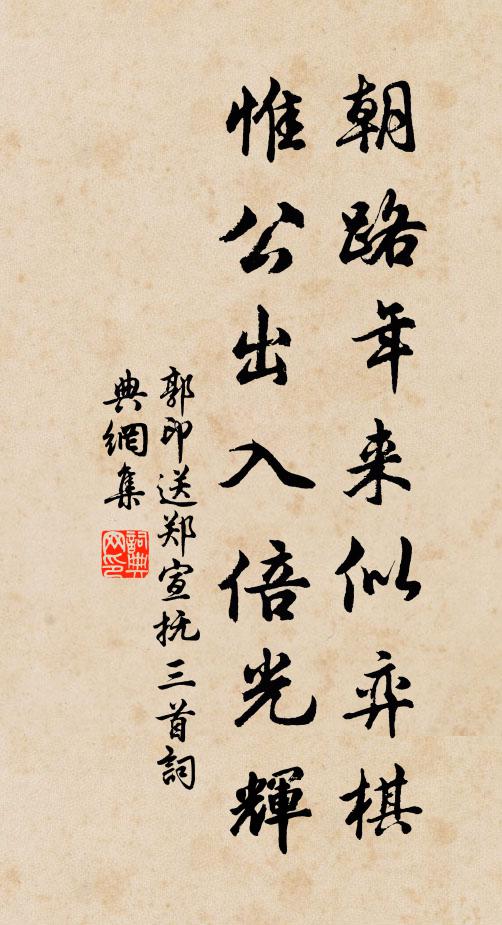 朝路年来似弈棋
惟公出入倍光輝
郭印送郑宣抚三首詞
典網集
詞典
网印